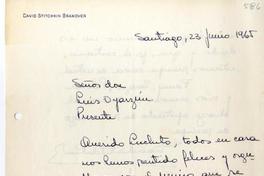 586
DAVID STITCHKIN BRANOVER
Santiago, 23 Junio 1965
Señor don
Luis Oyarzún
Presente
Querido Luchito, todos en casa
nos hemos sentido felices y orgu